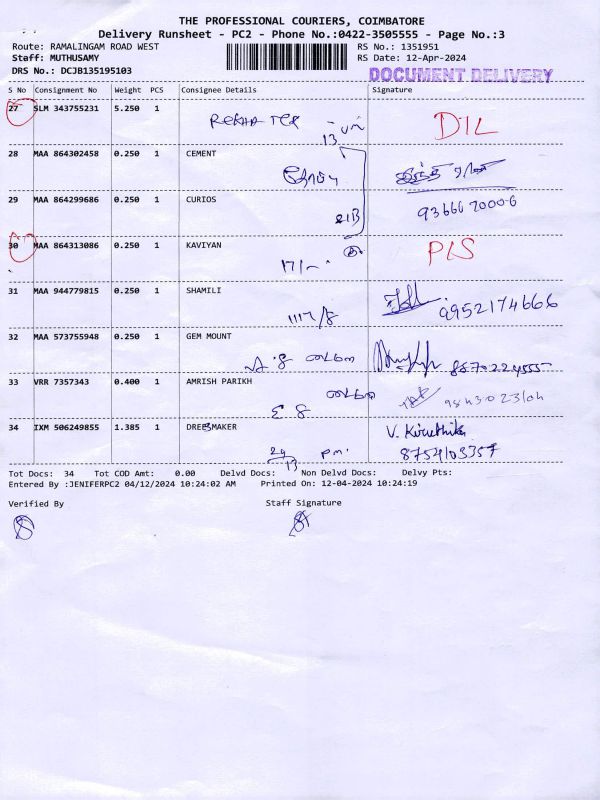 THE PROFESSIONAL COURIERS, COIMBATORE
Delivery Runsheet - PC2 - Phone No.:0422-3505555 - Page No.:3
Route: RAMALINGAM ROAD WEST RS No.: 1351951
Staff: MUTHUSAMY RS Date: 12-Apr-2024
DRS No.: DCJB135195103 DOCUMENT DELIVERY
S No Consignment No Weight PCS Consignee Details Signature
27 SLM 343755231 5.250 1
DIL
13
28 MAA 864302458 0.250 1 CEMENT
29 MAA 864299686 0.250 1 CURIOS
93666 70006
30 MAA 864313086 0.250 1 KAVIYAN P/S
171/-
31 MAA 944779815 0.250 1 SHAMILI
9952174666
32 MAA 573755948 0.250 1 GEM MOUNT
8870224555
33 VRR 7357343 0.400 1 AMRISH PARIKH
34 IXM 506249855 1.385 1 DREEMAKER V. Kiruthika
8754103357
Tot Docs: 34 Tot COD Amt: 0.00 Delvd Docs: Non Delvd Docs: Delvy Pts:
Entered By :JENIFERPC2 04/12/2024 10:24:02 AM Printed On: 12-04-2024 10:24:19
Verified By Staff Signature